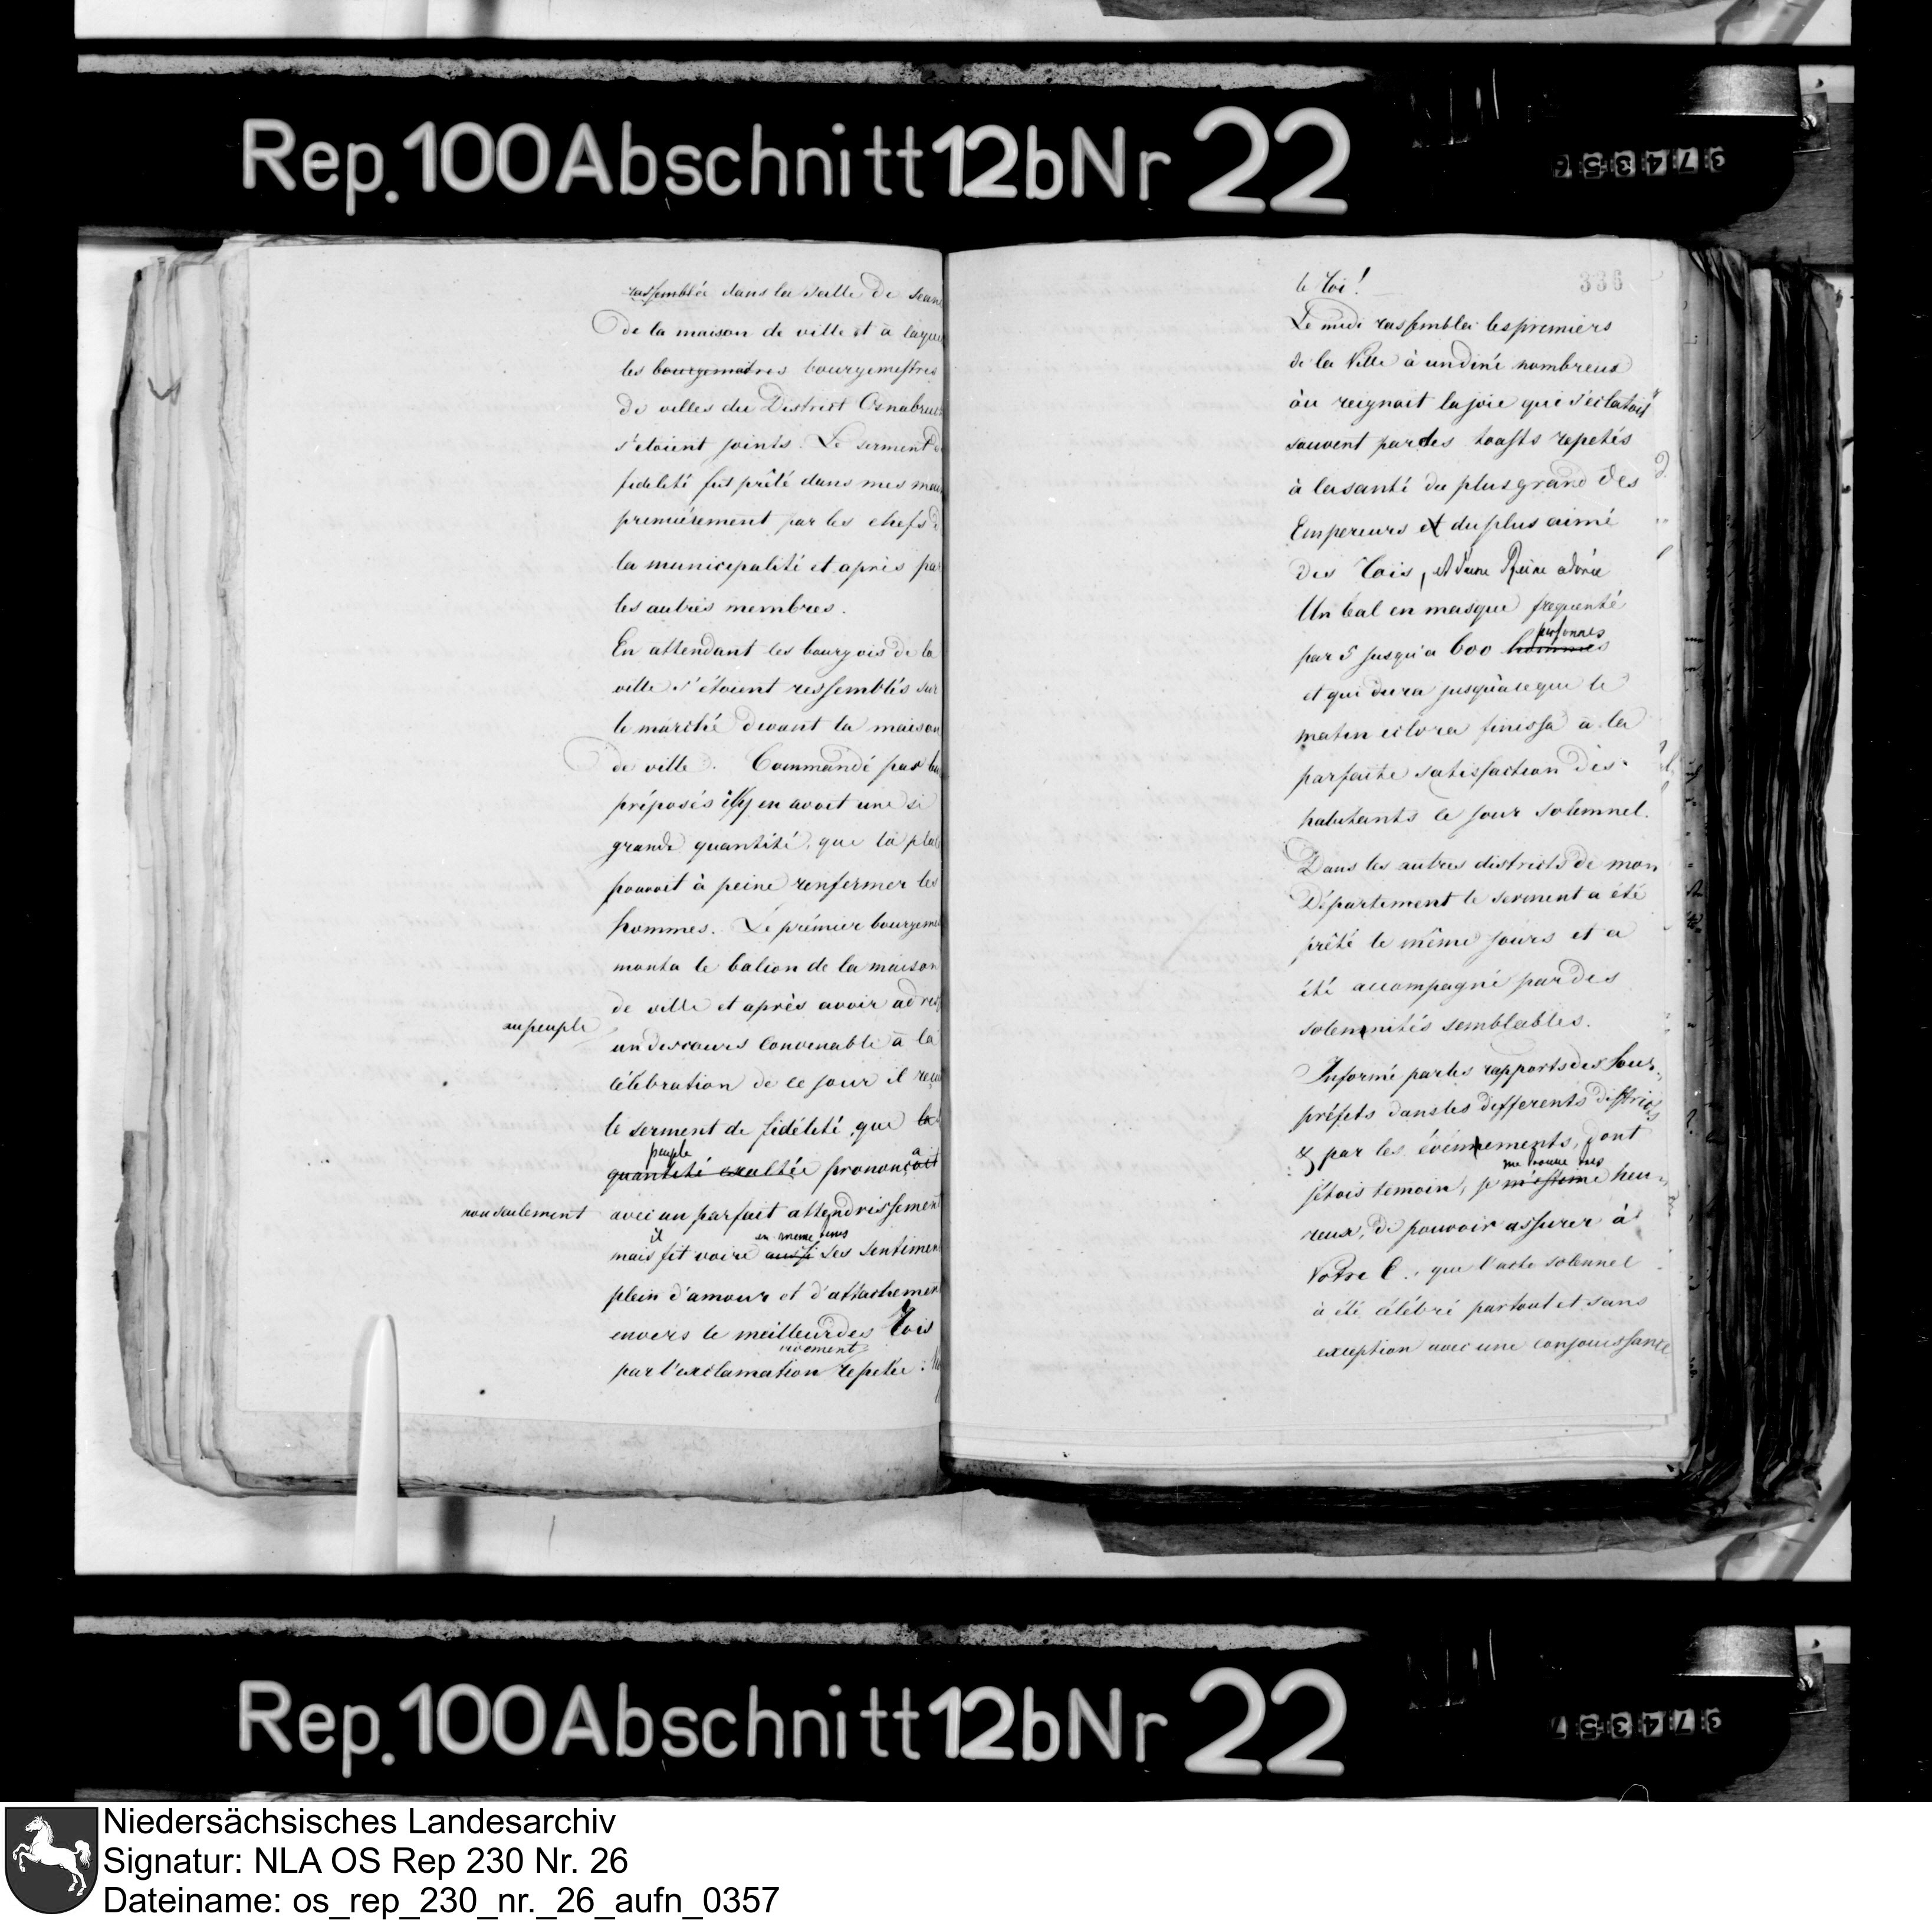 Rep. 100 Abschnitt 12b Nr 22
rassemblée dans la salle de sean
de la maison de ville et à laque
les bourgemaitres bourgemestres
de villes du District Osnabruc
s'etoient joints. Le serment d
fidelité fut prêté dans mes mai
premièrement par les chefs d
la municipalité et après pa
les autres membres.
En attendant les bourgois de la
ville s'étoient ressemblés sur
le marché devant la maison
de ville. Commandé par
préposés il y en avoit une si
grande quantité, que la plac
pouvoit à peine renfermer les
hommes. Le prémier bourgeme
monta le balcon de la maison
de ville et après avoir adres
au peuple
un discours convenable à la
célébration de ce jour il reçu
le serment de fidélité, que la
peuple a
quantité exaltée prononçait
non seulement avec un parfait attendrissement
il en meme tems
mais fit voire aussi ses sentimen
plein d'amour et d'attachemen
envers le meilleur des Rois
vivement
par l'exclamation repetée :
336
le Roi!
Le midi rassembla les premiers
de la Ville à un diné nombreux
òu reignait la joie qui s'eclatoit
souvent par des toasts repetés
à la santé du plus grand des
Empereurs et du plus aimé
des Rois, et d'une Reine adorée
Un bal en masque frequenté
personnes
par 5 jusqu'a 600 hommes
et qui dura jusqu'a ce que le
matin eclora finissa à la
parfaite satisfaction des
habitants le jour solemnel.
Dans les autres districts de mon
Département le serment a été
prêté le même jours et a
été accompagné par des
solemnités semblables.
Informé par les rapports des Sous-
préfets dans les differents districts
& par les évènnements, dont
me trouve tres
j'étois temoin, je m'estime heu-
reux, de pouvoir assurer à
Votre E. que l'acte solennel
à été célébré partout et sans
exception avec une conjouissance
Rep. 100 Abschnitt 12b Nr 22
Niedersächsisches Landesarchiv
Signatur: NLA OS Rep 230 Nr. 26
Dateiname: os_rep_230_nr._26_aufn_0357